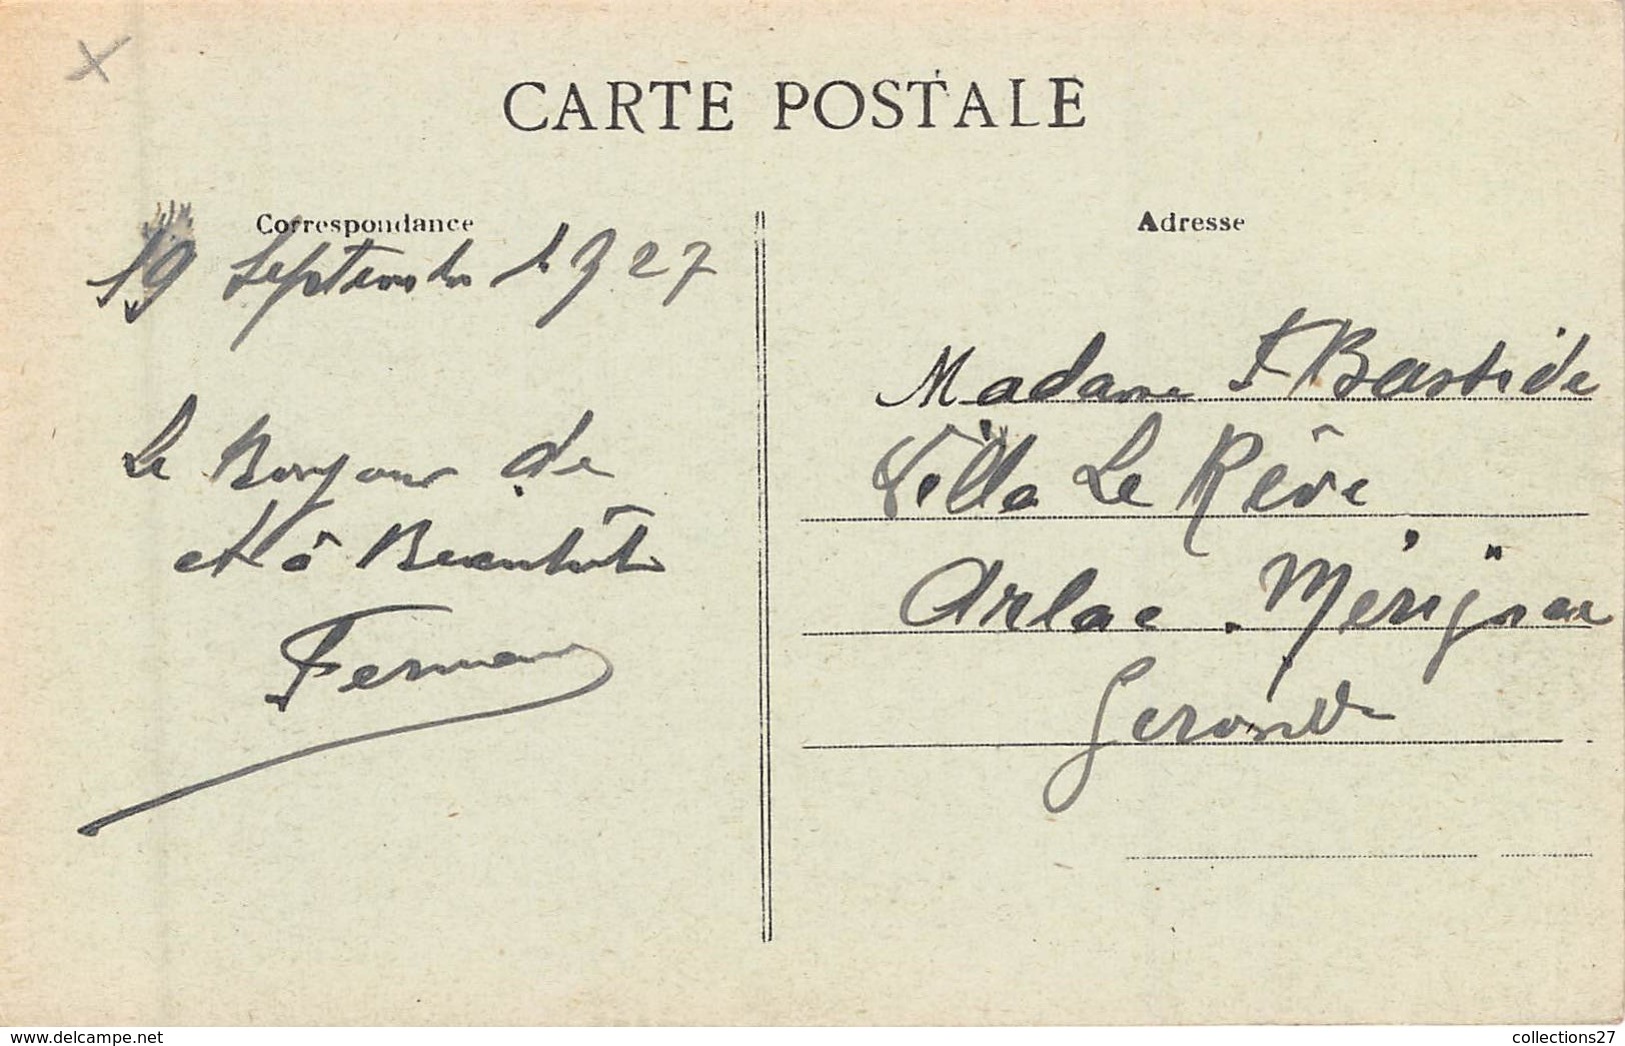 CARTE POSTALE
Correspondance
19 Septembre 1927
Le Bonjour de
et à Beautôt
Fernand
Adresse
Madame F Bastide
Villa Le Rêve
Arlac. Mérignac
Gironde
www.delcampe.net
collections27